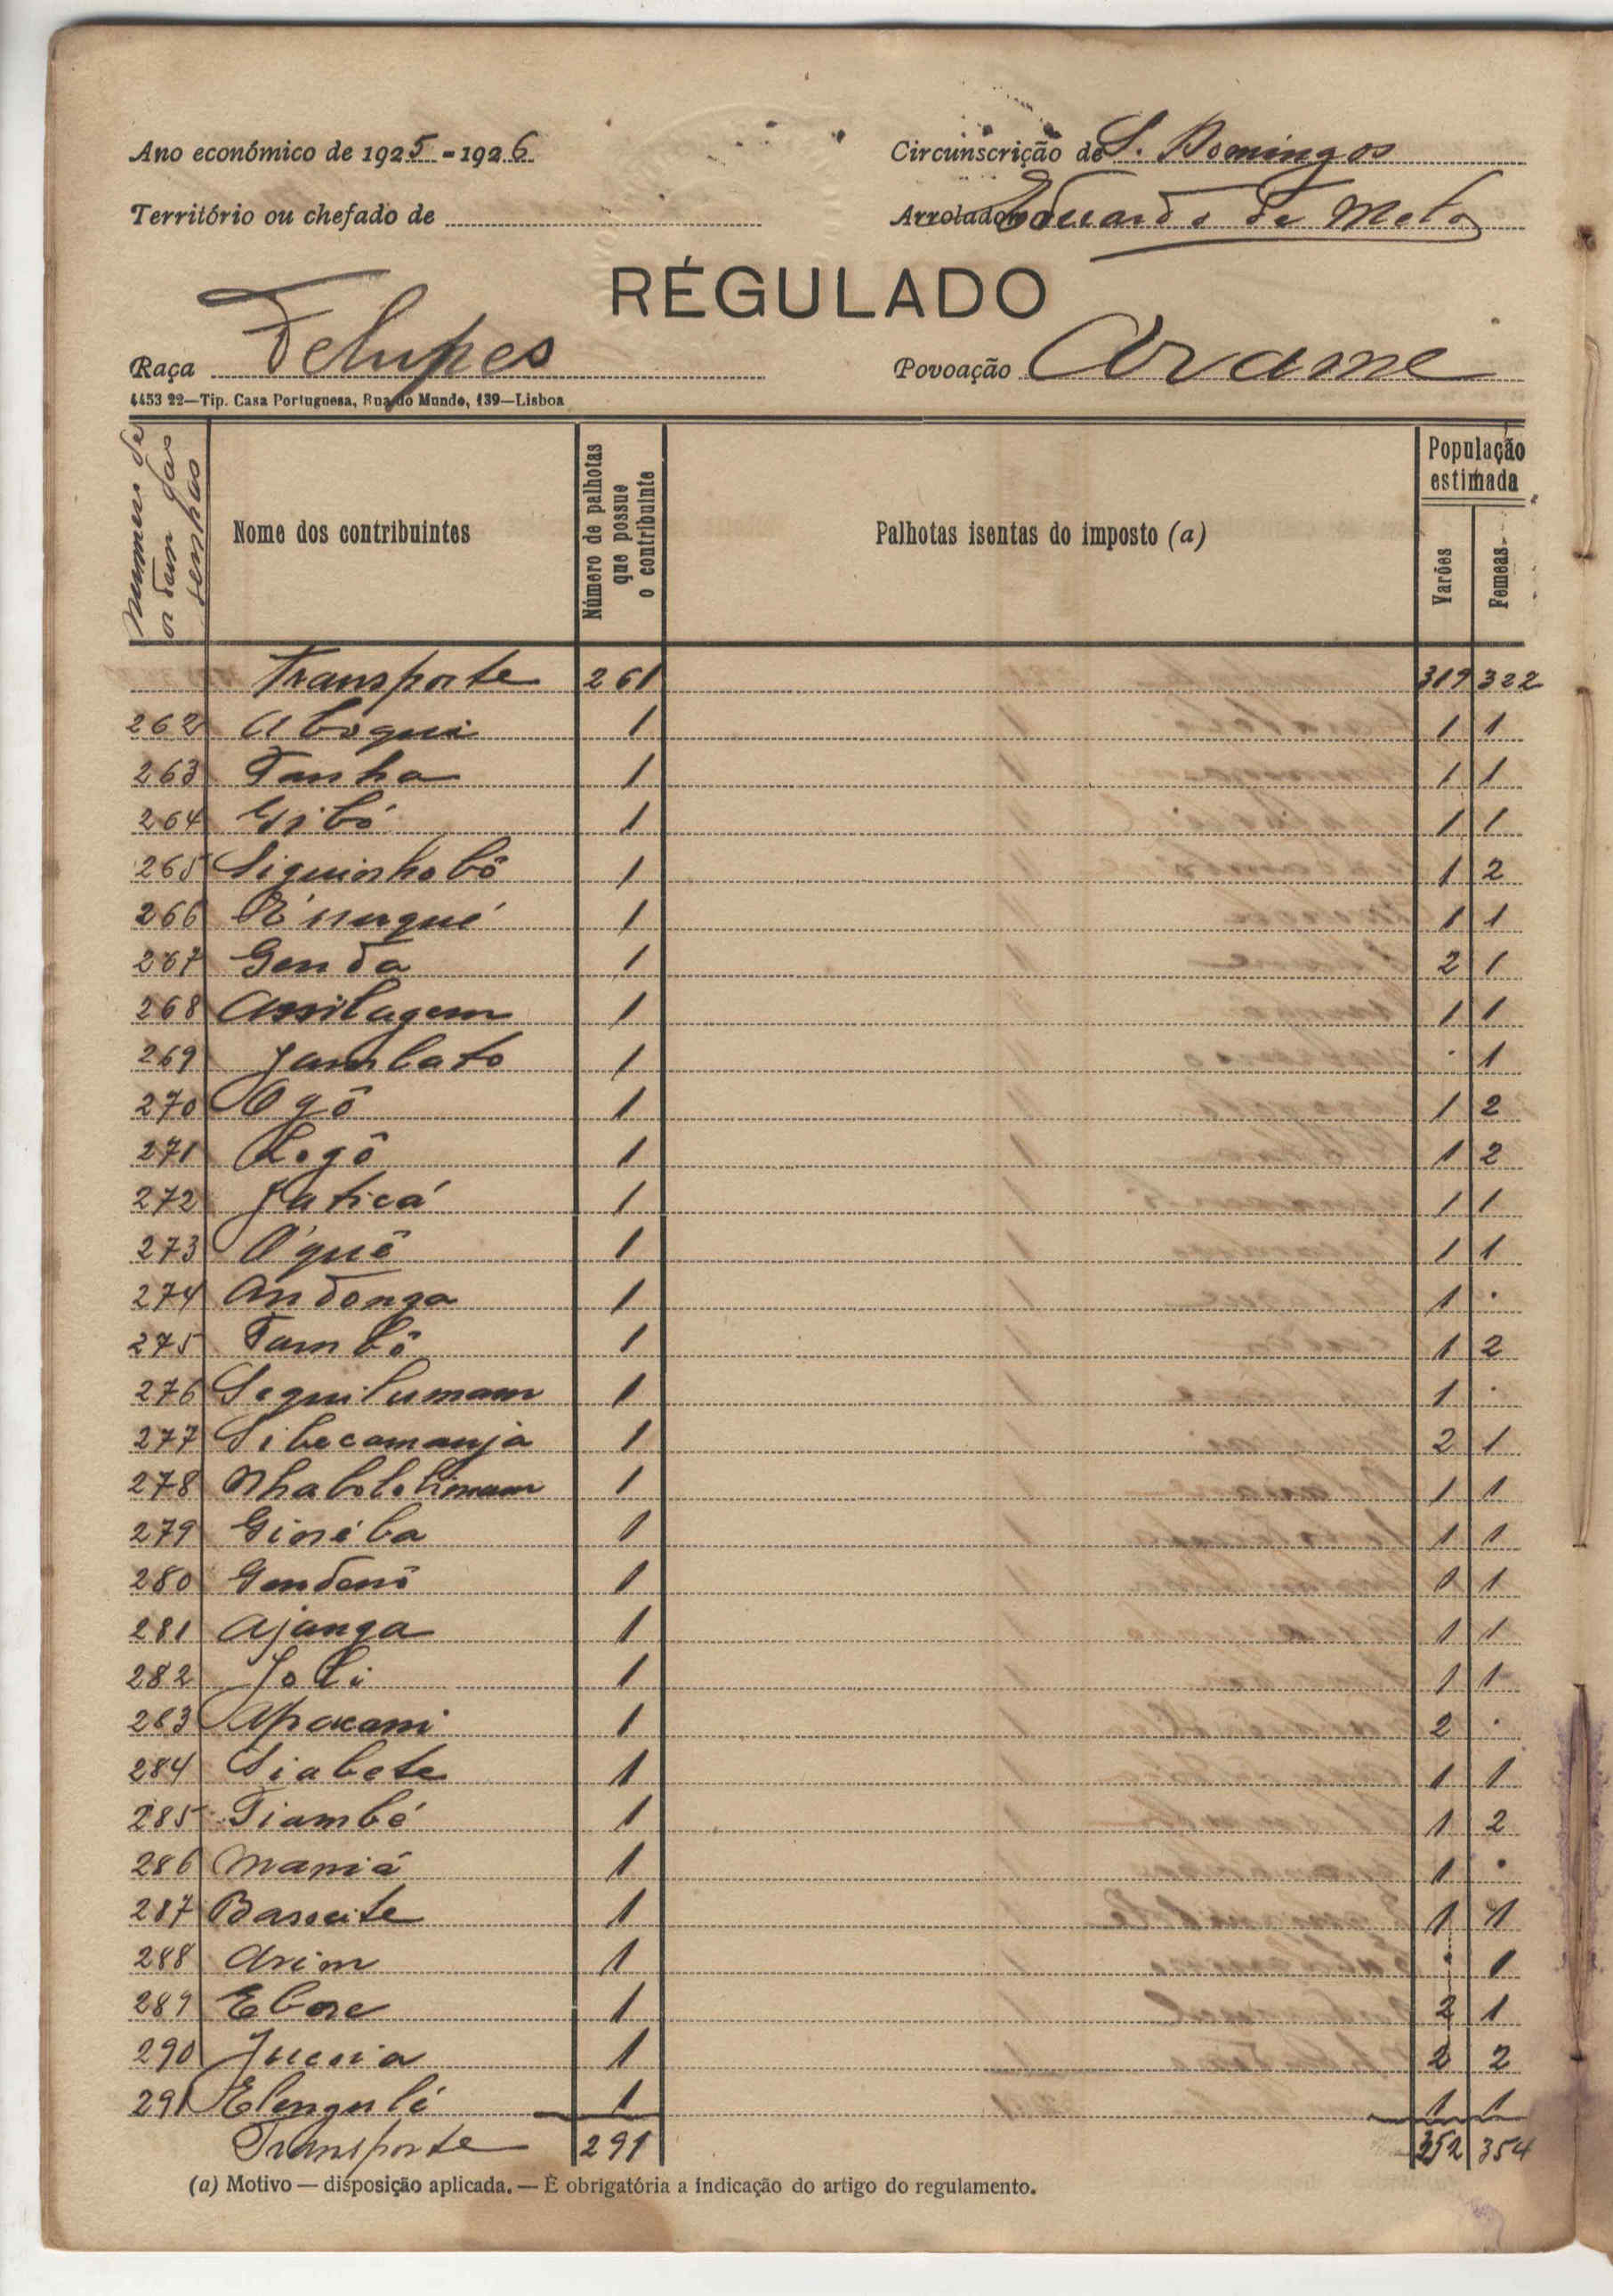 Ano económico de 1925-1926
Circunscrição de S. Domingos
Território ou chefado de
Arrolador Eduardo de Melo
RÉGULADO
Raça Felupes
Povoação Arame
4453 22—Tip. Casa Portuguesa, Rua do Mundo, 139—Lisboa
Numero de ordem das senhas
Nome dos contribuintes
Número de palhotas que possue o contribuinte
Palhotas isentas do imposto (a)
População estimada
Varões
Femeas
Transporte 261 319 322
262 Aboqui 1 1 1
263 Tanha 1 1 1
264 Gibó 1 1 1
265 Siquinhobô 1 1 2
266 1 1 1
267 Genda 1 2 1
268 Assilagem 1 1 1
269 Jambato 1 . 1
270 Ogô 1 1 2
271 Logô 1 1 2
272 Jaticá 1 1 1
273 O'quê 1 1 1
274 Andonga 1 1 .
275 Tambô 1 1 2
276 Sequilumam 1 1 .
277 Sibecamanja 1 2 1
278 1 1 1
279 Ginéba 1 1 1
280 Gendenô 1 1 1
281 Ajanga 1 1 1
282 Joli 1 1 1
283 1 2 .
284 Siabete 1 1 1
285 Tiambé 1 1 2
286 Maniá 1 1 .
287 1 1 1
288 Arim 1 . 1
289 Ebone 1 2 1
290 1 2 2
291 Elengulé 1 1 1
Transporte 291 352 354
(a) Motivo — disposição aplicada. — È obrigatória a indicação do artigo do regulamento.